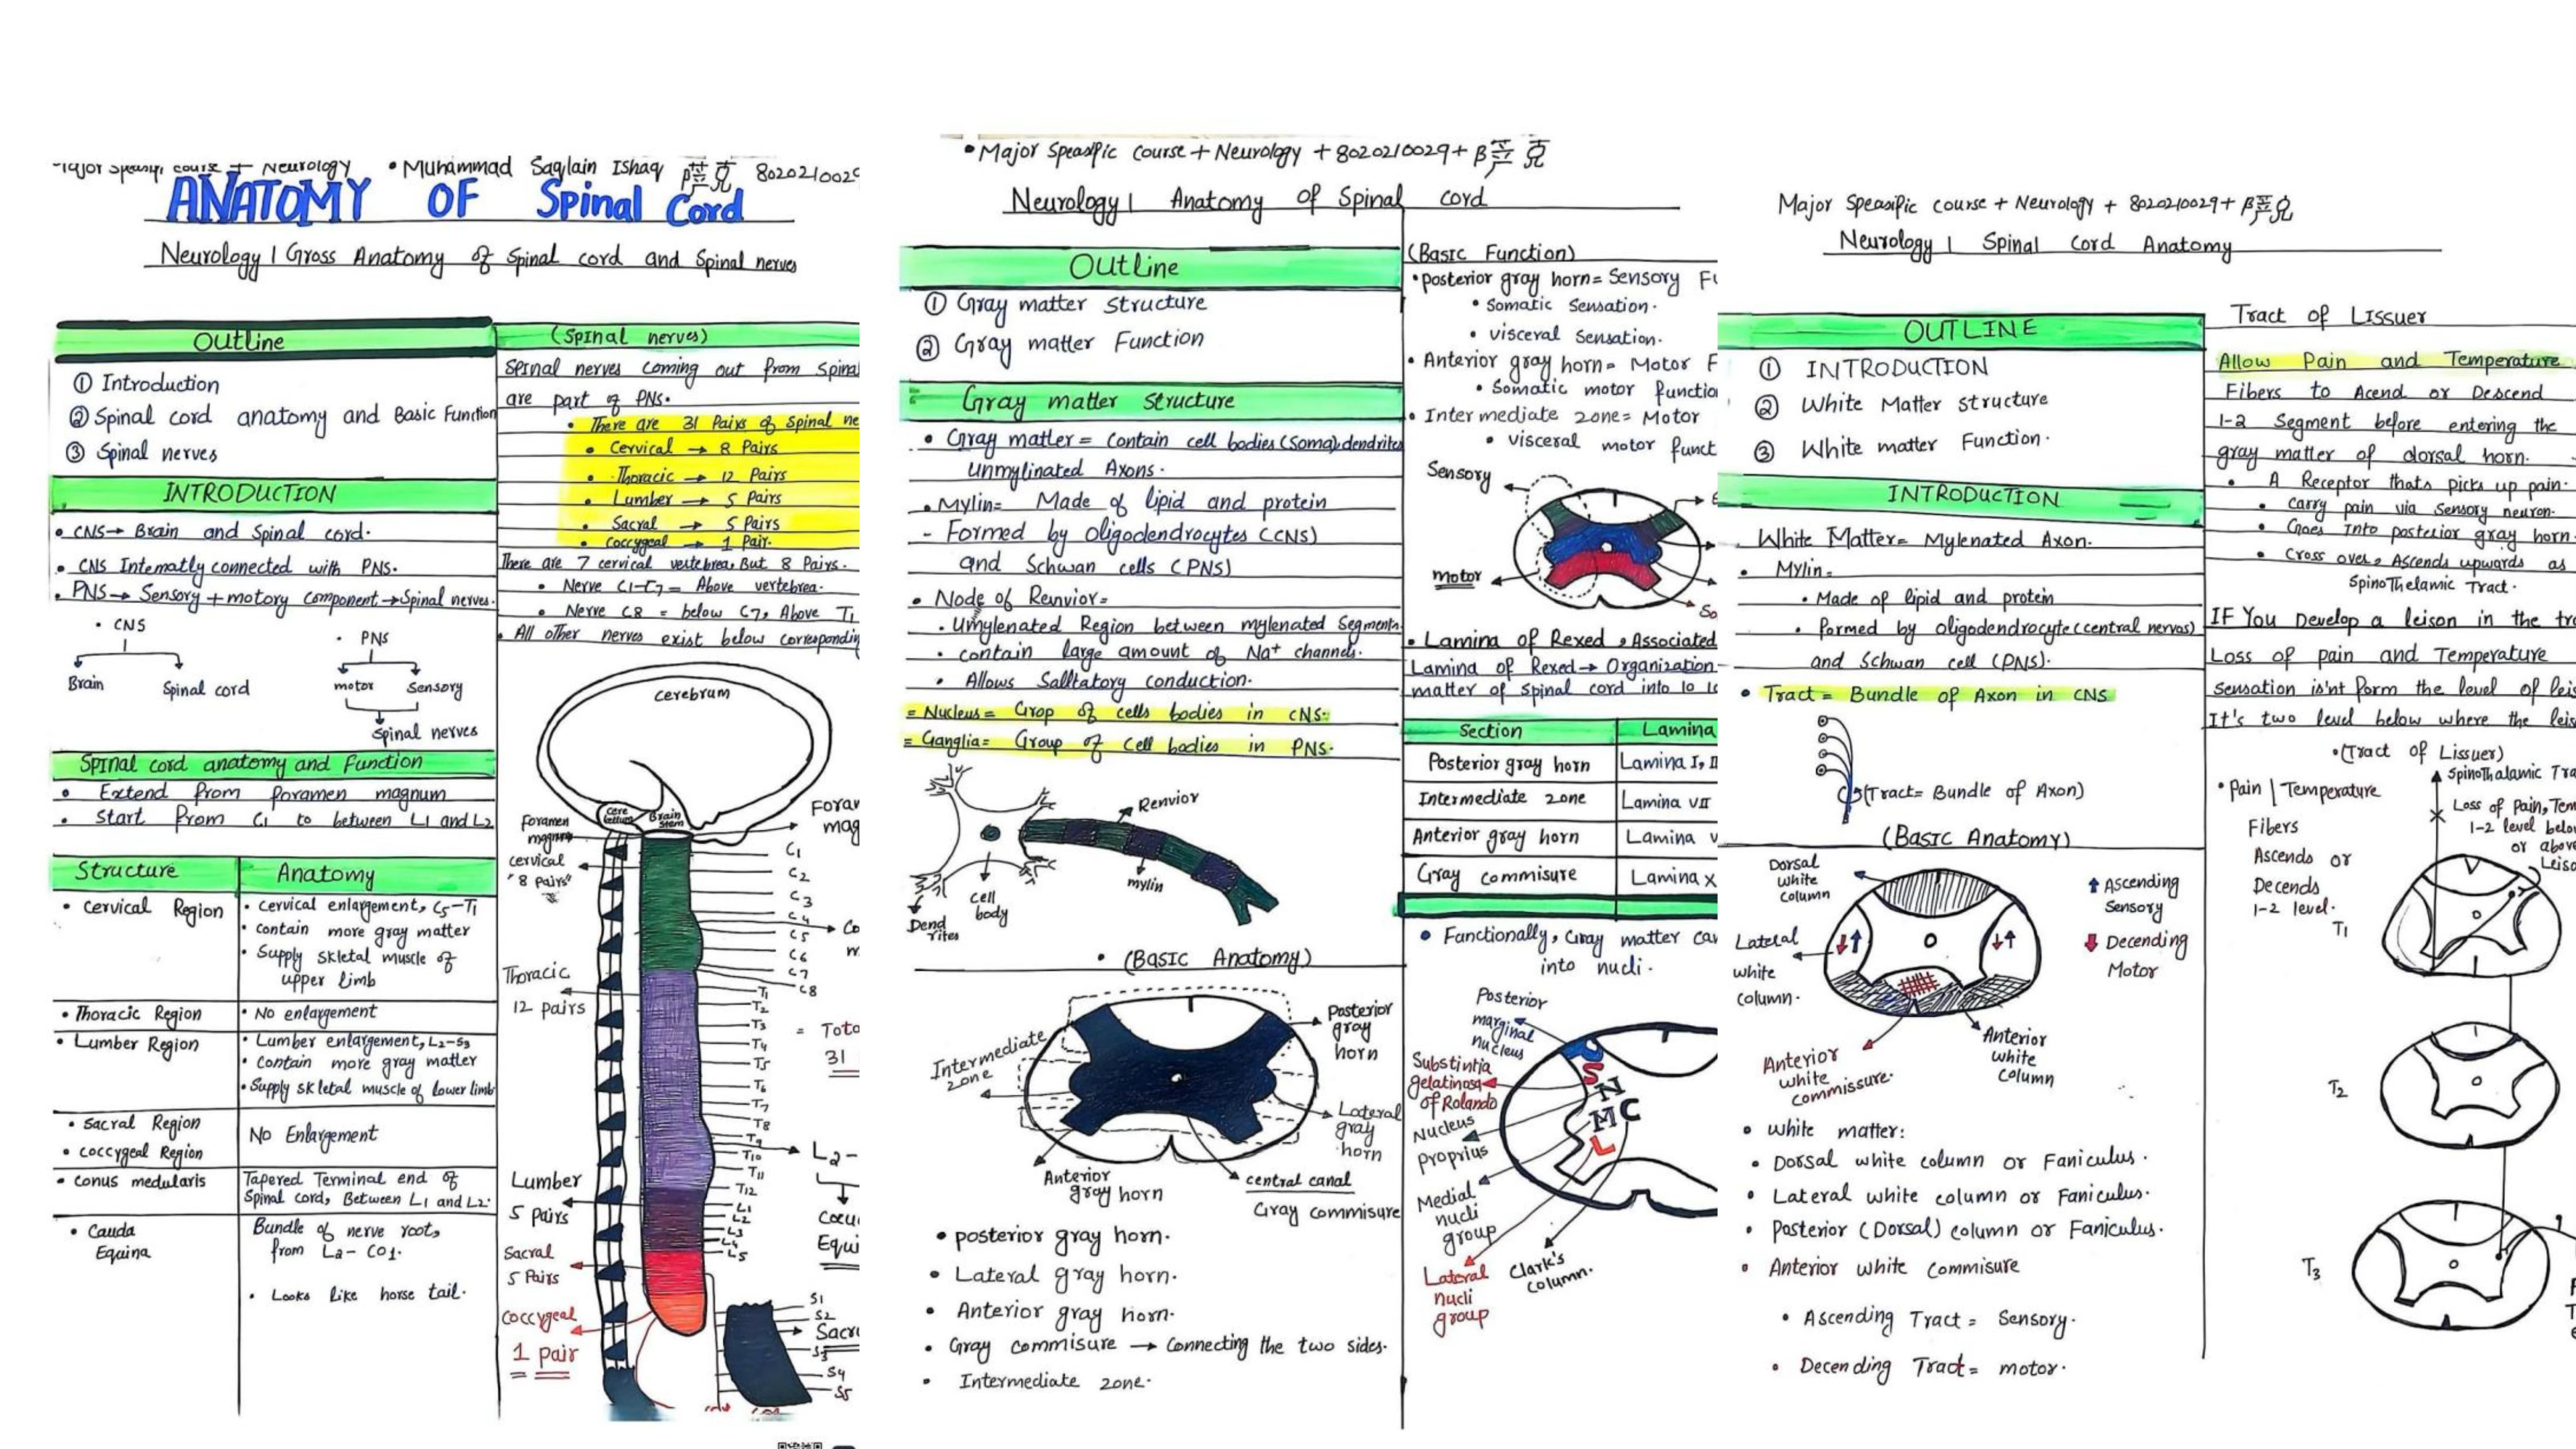 Neurology • Muhammad Saqlain Ishaq
ANATOMY OF Spinal Cord
Neurology | Gross Anatomy of Spinal cord and Spinal nerves
Outline
① Introduction
② Spinal cord anatomy and Basic Function
③ Spinal nerves
INTRODUCTION
• CNS→ Brain and Spinal cord.
• CNS Intematly connected with PNS.
• PNS→ Sensory + motory component→Spinal nerves.
• CNS
Brain
Spinal cord
• PNS
motor
Sensory
Spinal nerves
Spinal cord anatomy and Function
• Extend from foramen magnum
• Start from C1 to between L1 and L2
Structure
Anatomy
• Cervical Region
• cervical enlargement, C5-T1
• contain more gray matter
• Supply skletal muscle of
upper limb
• Thoracic Region
• No enlargement
• Lumber Region
• Lumber enlargement, L2-S3
• Contain more gray matter
• Supply skletal muscle of lower limb
• Sacral Region
• coccygeal Region
No Enlargement
• conus medularis
Tapered Terminal end of
Spinal cord, Between L1 and L2.
• Cauda
Equina
Bundle of nerve root,
from L2- CO1.
• Looks like horse tail.
(Spinal nerves)
Spinal nerves coming out from Spina
are part of PNS.
• There are 31 Pairs of Spinal ne
• Cervical → 8 Pairs
• Thoracic → 12 Pairs
• Lumber → 5 Pairs
• Sacral → 5 Pairs
• Coccygeal → 1 Pair.
There are 7 cervical vertebrea, But 8 Pairs.
• Nerve C1-C7 = Above vertebrea.
• Nerve C8 = below C7, Above T1
• All other nerves exist below correspondin
cerebrum
Cere
bellum
Brain
Stem
Foramen
magnum
Foram
mag
cervical
"8 pairs"
C1
C2
C3
C4
C5
C6
C7
C8
Thoracic
12 pairs
T1
T2
T3
T4
T5
T6
T7
T8
T9
T10
T11
T12
= Tota
31
L2-
Lumber
5 pairs
L1
L2
L3
L4
L5
Equi
Sacral
5 Pairs
coccygeal
1 pair
S1
S2
Sacr
S3
S4
S5
• Major Speasific Course + Neurology + 8020210029+
Neurology | Anatomy of Spinal cord
Outline
① Gray matter structure
② Gray matter Function
Gray matter structure
• Gray matler = contain cell bodies (Soma), dendrites
unmylinated Axons.
• Mylin= Made of lipid and protein
- Formed by Oligodendrocytes (CNS)
and Schwan cells (PNS)
• Node of Renvior=
• Umylenated Region between mylenated Segments
• contain large amount of Na+ channels.
• Allows Salltatory conduction.
= Nucleus = Grop of cells bodies in CNS.
= Ganglia= Group of Cell bodies in PNS.
Renvior
mylin
cell
body
Dend
rites
• (Basic Anatomy)
Intermediate
zone
Posterior
gray
horn
Lateral
gray
horn
Anterior
gray horn
central canal
Gray commisure
• posterior gray horn.
• Lateral gray horn.
• Anterior gray horn.
• Gray commisure → Connecting the two sides.
• Intermediate zone.
(Basic Function)
• posterior gray horn= Sensory Fu
• Somatic Sensation.
• visceral Sensation.
• Anterior gray horn= Motor F
• Somatic motor functio
• Inter mediate zone= Motor
• visceral motor funct
Sensory
motor
So
• Lamina of Rexed, Associated
Lamina of Rexed→ Organization
matter of spinal cord into 10 la
Section
Lamina
Posterior gray horn
Lamina I, II
Intermediate zone
Lamina VII
Anterior gray horn
Lamina V
Gray commisure
Lamina X
• Functionally, Gray matter can
into nucli.
Posterior
marginal
nucleus
Substintia
gelatinosa
of Rolando
Nucleus
proprius
Medial
nucli
group
Lateral
nucli
group
Clark's
column.
S
N
M C
L
Major Speasific course + Neurology + 8020210029+
Neurology | Spinal Cord Anatomy
OUTLINE
① INTRODUCTION
② White Matter structure
③ White matter Function.
INTRODUCTION
White Matter= Mylenated Axon.
• Mylin=
• Made of lipid and protein
• formed by oligodendrocyte (central nervos)
and Schwan cell (PNS).
• Tract = Bundle of Axon in CNS
(Tract= Bundle of Axon)
(Basic Anatomy)
Dorsal
white
column
Lateral
white
column.
Ascending
Sensory
Decending
Motor
Anterior
white
commissure.
Anterior
white
column
• white matter:
• Dorsal white column or Faniculus.
• Lateral white column or Faniculus.
• Posterior (Dorsal) column or Faniculus.
• Anterior white Commisure
• Ascending Tract = Sensory.
• Decending Tract= motor.
Tract of Lissuer
Allow Pain and Temperature
Fibers to Acend or Descend
1-2 Segment before entering the
gray matter of dorsal horn.
• A Receptor thats picks up pain.
• Carry pain via Sensory neuron.
• Goes Into posterior gray horn
• Cross over, Ascends upwards as
SpinoThelamic Tract.
IF You Develop a leison in the tra
Loss of pain and Temperature
Sensation is'nt form the level of leis
It's two level below where the leis
• (Tract of Lissuer)
• Pain | Temperature
Fibers
Ascends or
Decends
1-2 level.
SpinoThalamic Tra
Loss of Pain, Tem
1-2 level belo
or above
Leiso
T1
T2
T3